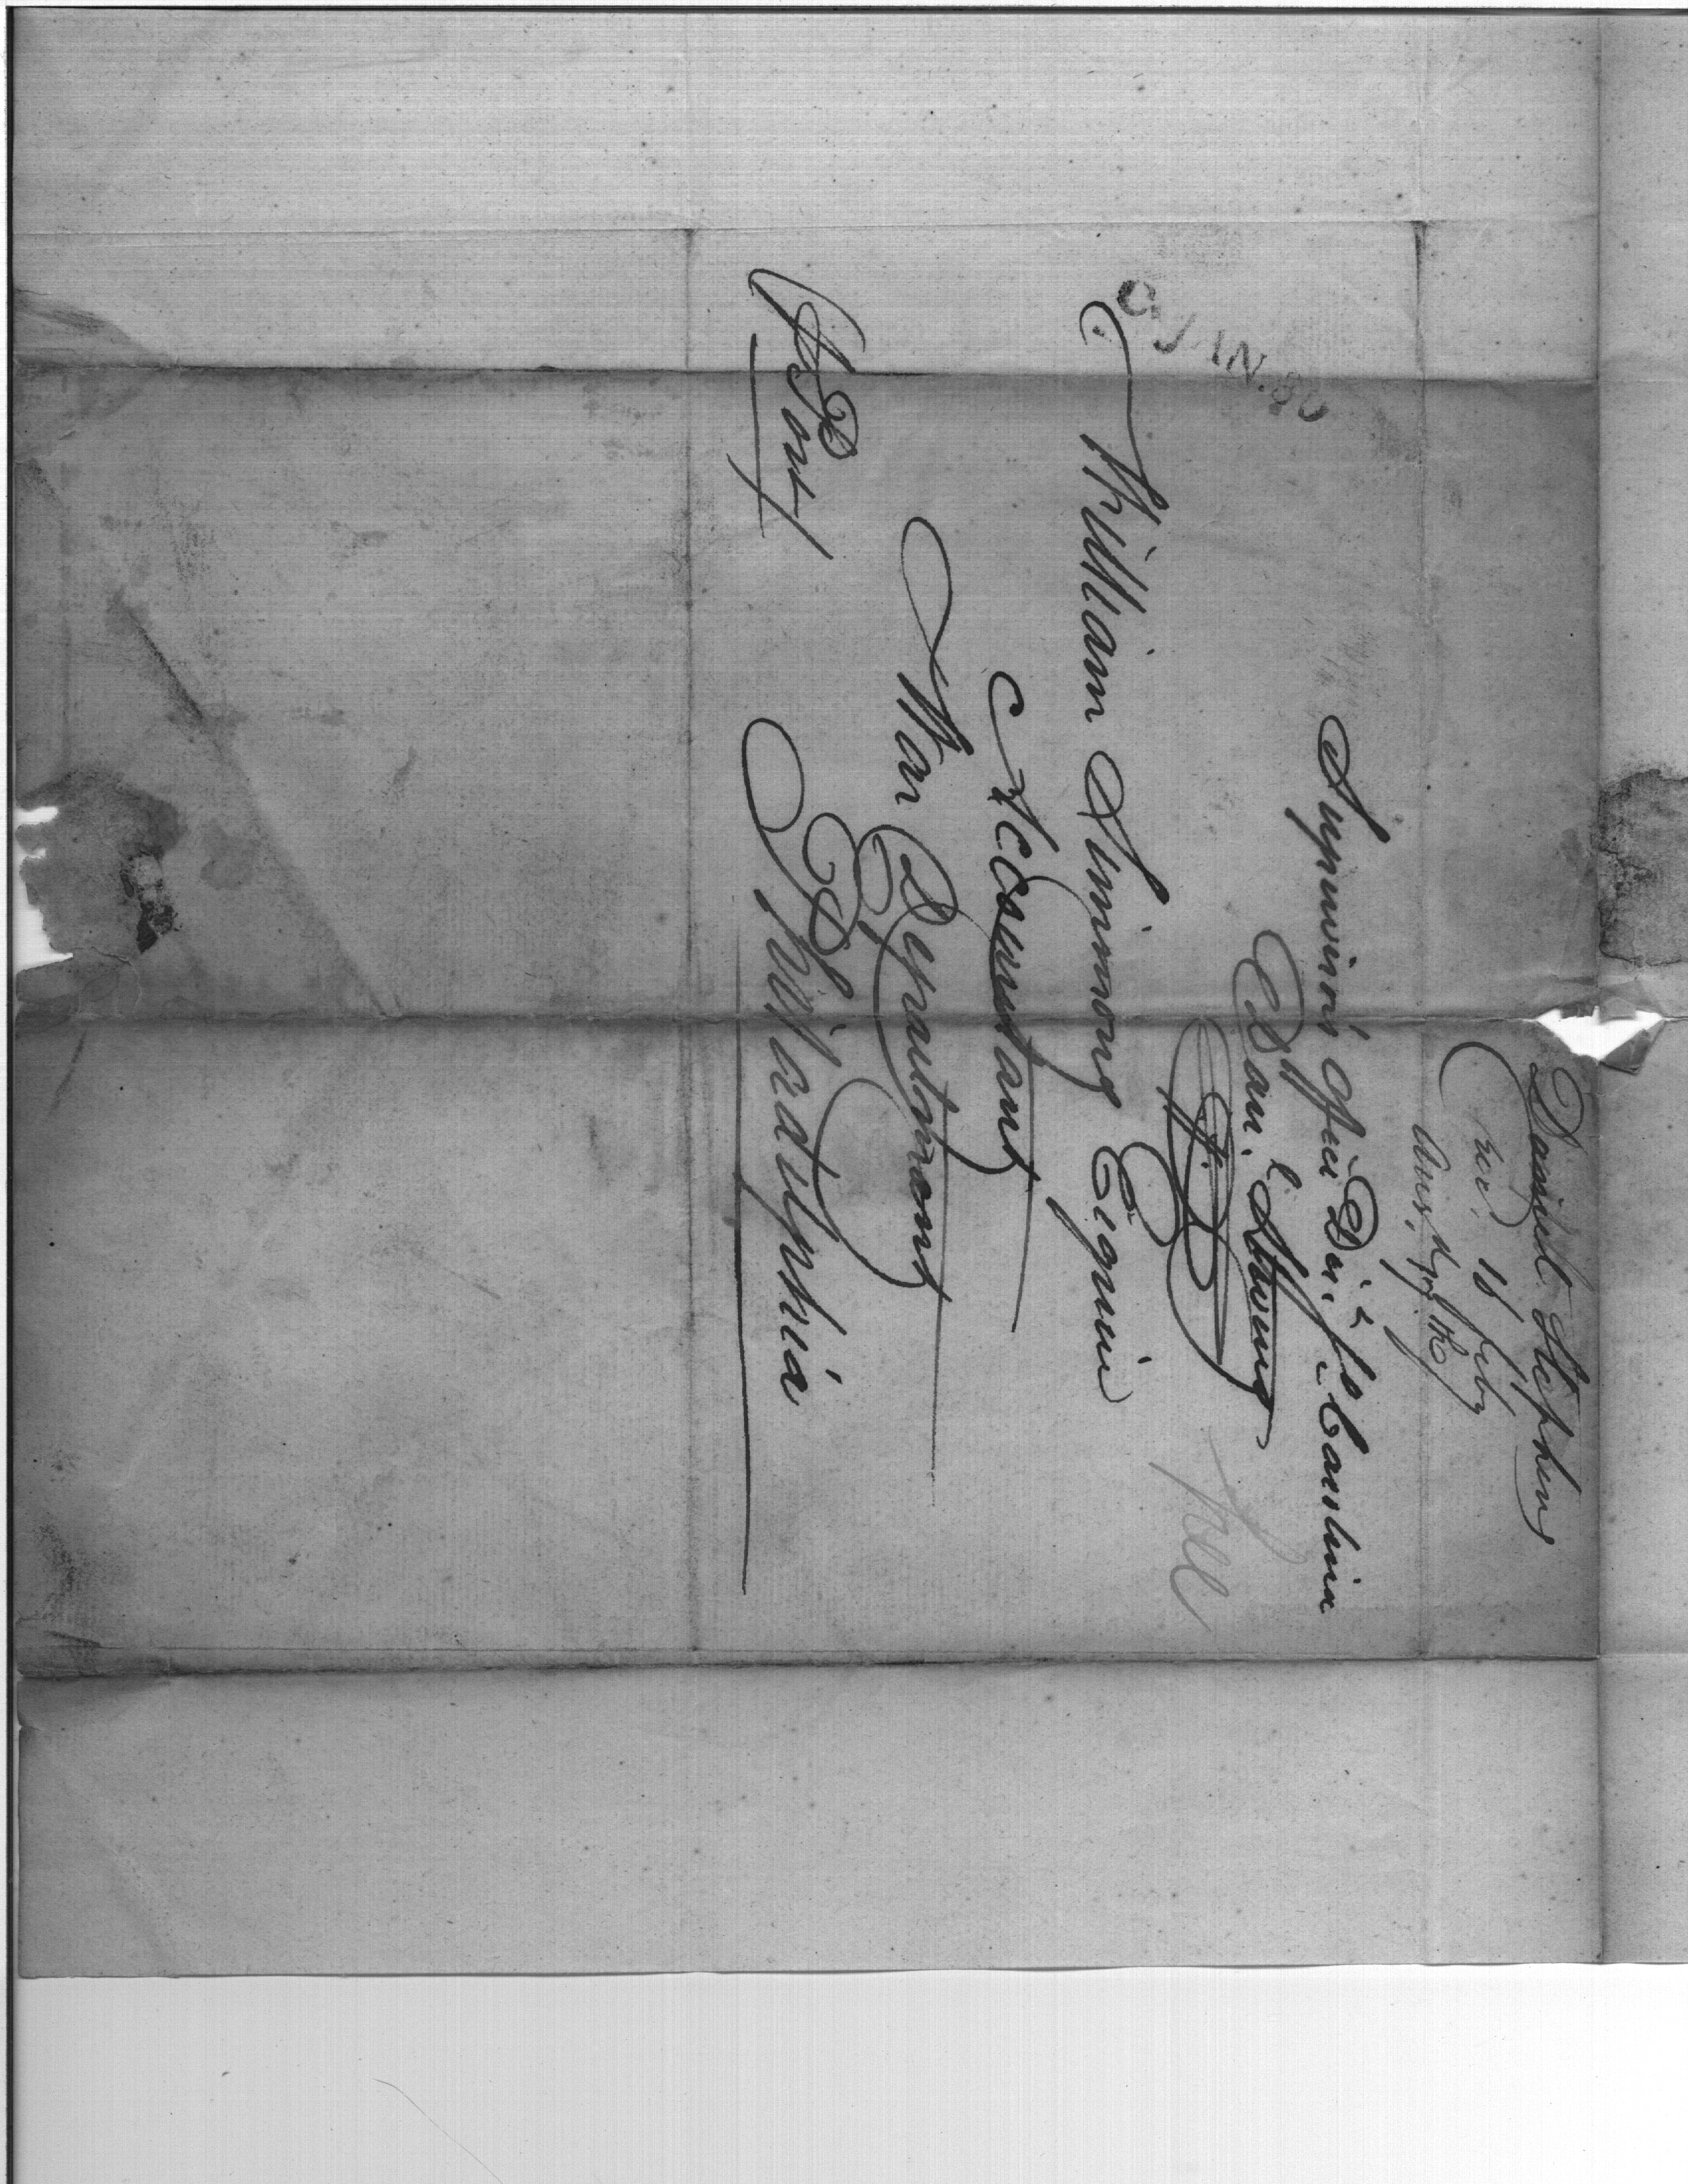 Daniel Stephens
rec. 18 feby
Ans.
Supervisor's Office Dist. So. Carolina
Dan. Stevens
free
C. JAN. 30
William Simmons Esquire
Accountant
War Department
Philadelphia
(p Post)